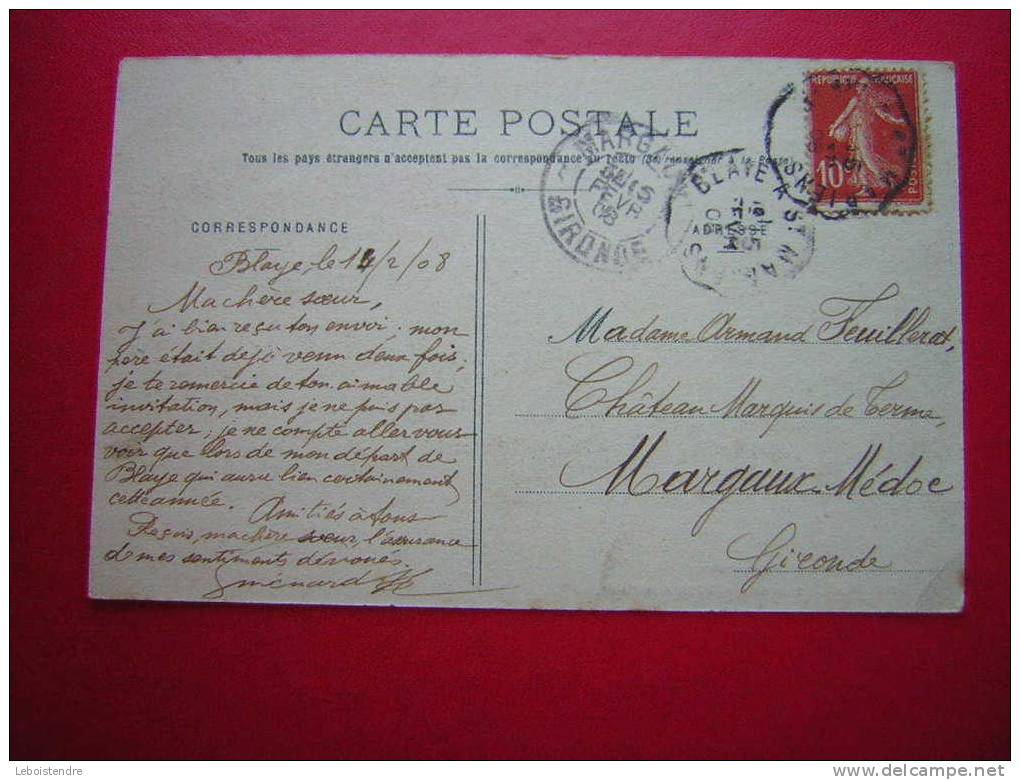 CARTE POSTALE
Tous les pays étrangers n'acceptent pas la correspondance au recto (Se renseigner à la Poste)
RÉPUBLIQUE FRANÇAISE
10
POSTES
MARGAUX
15
FEVR
08
GIRONDE
BLAYE A ST MARIENS
CORRESPONDANCE
ADRESSE
Blaye, le 14/2/08
Ma chère sœur,
J'ai bien reçu ton envoi. mon
pere était dejà venu deux fois,
je te remercie de ton aimable
invitation, mais je ne puis pas
accepter; je ne compte aller vous
voir que lors de mon départ de
Blaye qui aura lieu certainement
cette année. Amitiés à tous
Reçois, ma chère sœur l'assurance
de mes sentiments dévoués.
Guénard
Madame Armand Feuillerat,
Château Marquis de Terme,
Margaux-Médoc
Gironde
Leboistendre
delcampe.net